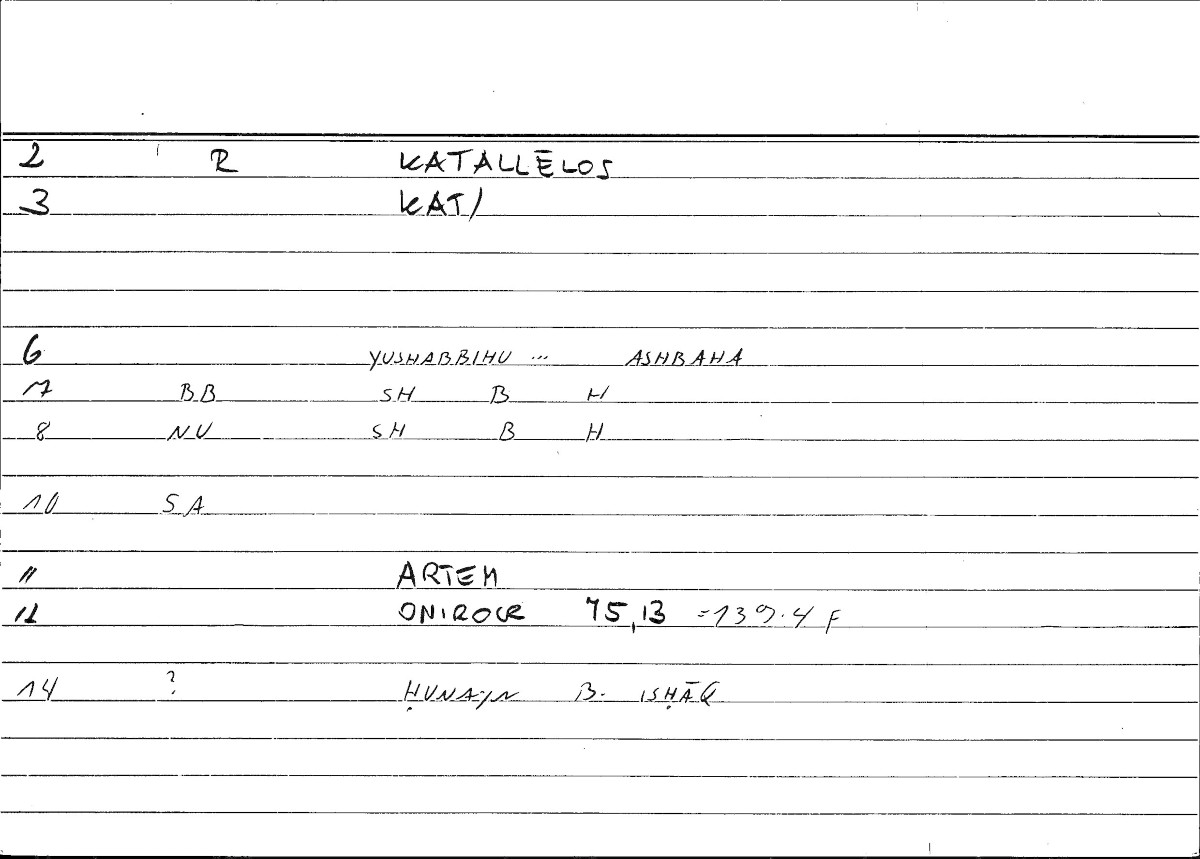 2 R KATALLĒLOS
3 KAT/
6 YUSHABBIHU ... ASHBAHA
7 BB SH B H
8 NU SH B H
10 SA
11 ARTEM
12 ONIROCR 75,13 =139.4 F
14 ? ḤUNAYN B. ISḤĀQ